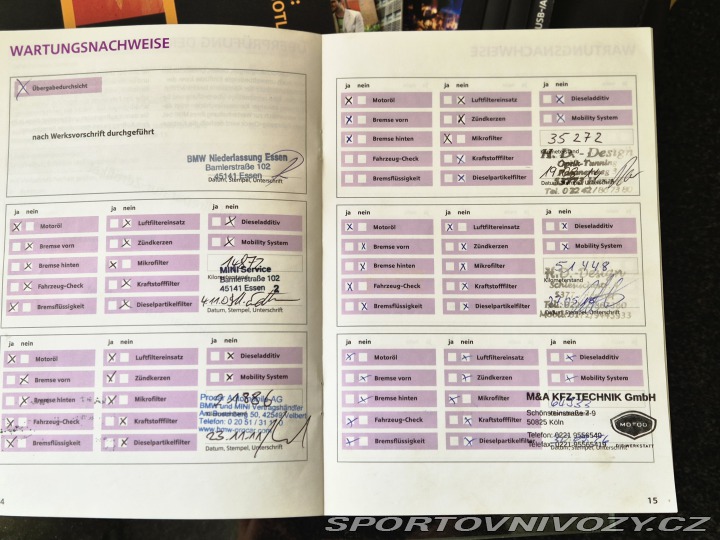 WARTUNGSNACHWEISE
Übergabedurchsicht
nach Werksvorschrift durchgeführt
BMW Niederlassung Essen
Barnierstraße 102
45141 Essen
Datum, Stempel, Unterschrift
ja nein
nein
nein
Motoröl
Luftfiltereinsatz
Dieseladditiv
Bremse vorn
Zündkerzen
Mobility System
Bremse hinten
Mikrofilter
Fahrzeug-Check
Kraftstofffilter
Bremsflüssigkeit
Dieselpartikelfilter
MINI Service
Barnierstraße 102
45141 Essen 2
Datum, Stempel, Unterschrift
ja nein
ja nein
ja nein
Motoröl
Luftfiltereinsatz
Dieseladditiv
Bremse vorn
Zündkerzen
Mobility System
Bremse hinten
Mikrofilter
Fahrzeug-Check
Kraftstofffilter
Bremsflüssigkeit
Dieselpartikelfilter
BMW und MINI Vertragshändler
23.11.11
Datum, Stempel, Unterschrift
4
ja nein
ja nein
ja nein
Motoröl
Luftfiltereinsatz
Dieseladditiv
Bremse vorn
Zündkerzen
Mobility System
Bremse hinten
Mikrofilter
35272
Kilometerstand
Fahrzeug-Check
Kraftstofffilter
Bremsflüssigkeit
Dieselpartikelfilter
H.D.-Design
ja nein
ja nein
ja nein
Motoröl
Luftfiltereinsatz
Dieseladditiv
Bremse vorn
Zündkerzen
Mobility System
Bremse hinten
Mikrofilter
51448
Kilometerstand
Fahrzeug-Check
Kraftstofffilter
Bremsflüssigkeit
Dieselpartikelfilter
H.D.-Design
Datum, Stempel, Unterschrift
ja nein
ja nein
ja nein
Motoröl
Luftfiltereinsatz
Dieseladditiv
Bremse vorn
Zündkerzen
Mobility System
Bremse hinten
Mikrofilter
Fahrzeug-Check
Kraftstofffilter
Bremsflüssigkeit
Dieselpartikelfilter
M&A KFZ-TECHNIK GmbH
Schönsteinstraße 7-9
50825 Köln
Telefon: 0221 9556540
Telefax: 0221 95565419
MOTOO
DIE WERKSTATT
15
SPORTOVNIVOZY.CZ